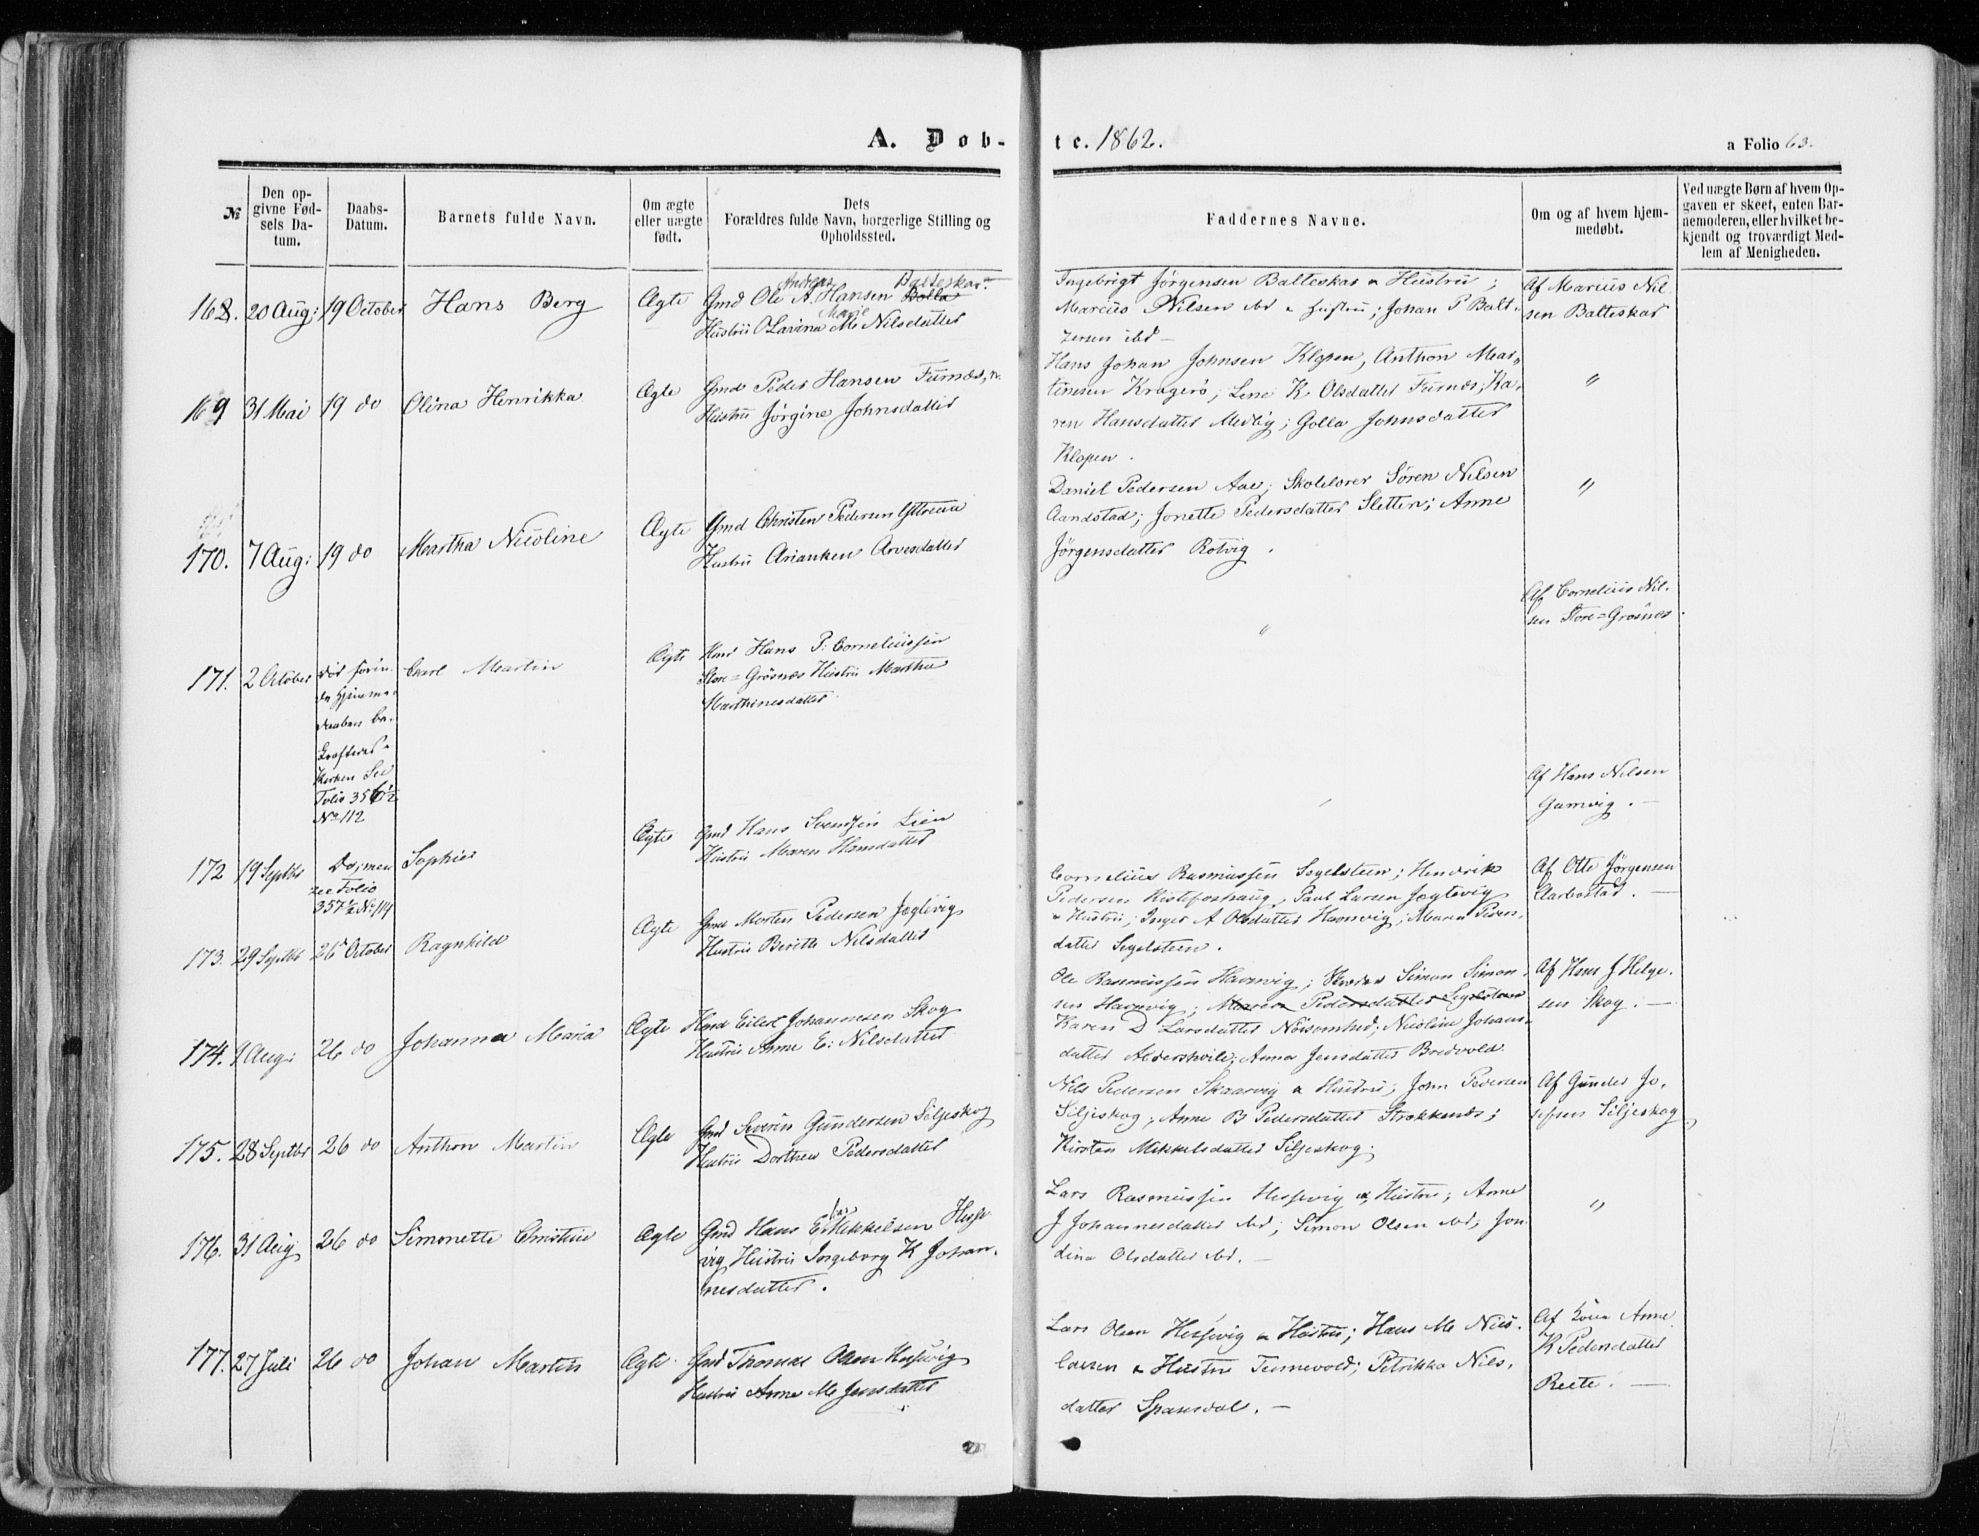 A. Døb-
te. 1862.
a Folio 63.
№
Den op-
givne Fød-
sels Da-
tum.
Daabs-
Datum.
Barnets fulde Navn.
Om ægte
eller uægte
født.
Dets
Forældres fulde Navn, borgerlige Stilling og
Opholdssted.
Faddernes Navne.
Om og af hvem hjem-
medøbt.
Ved uægte Børn af hvem Op-
gaven er skeet, enten Bar-
nemoderen, eller hvilket be-
kjendt og troværdigt Med-
lem af Menigheden.
168. 20 Aug: 19 October Hans Berg Ægte
Andreas Balteskar
Gmd Ole A. Hansen Bolla
Marie
Hustru OLavina M Nilsdatter
Ingebrigt Jørgensen Balteskar & Hustru;
Marcus Nilsen ibd & Hustru; Johan P Balt-
zersen ibd —
Af Marius Nil
sen Balteskar
169 31 Mai 19 do Olina Henrikka Ægte
Gmd Peder Hansen Furnæs,
Hustru Jørgine Johnsdatter
Hans Johan Johnsen Klopen, Anthon Mar-
tinesen Kragerö; Lene K Olsdatter Furnæs; Ka-
ren Hansdatter Medby; Golla Johnsdatter
Klopen.
"
170. 7 Aug: 19 do Martha Nicoline Ægte
Gmd Christen Pedersen Yttreaa
Hustru Arianken Arvesdatter
Daniel Pedersen Aae; Skolelærer Sören Nilsen
Aandstad; Jonette Pedersdatter Sletten; Anne
Jørgensdatter Rotvig.
"
171. 2 October Carl Martin Ægte
Død forin-
den Hjemme-
daaben be-
kræftedes i
Kirken See
Folio 356½
No 112
Hans P: Corneliussen
Store=Grösnes Hustru Martha
Marthinesdatter
"
Af Cornelius Nil-
sen Store=Grösnes.
172 19 Septbr Sophie Ægte
Folio
357½ No: 114
Gmd Hans Svendsen Lien
Hustru Maren Hansdatter
Af Hans Nilsen
Gamvig. —
173. 29 Septbr 26 October Ragnhild Ægte
Gmd Morten Pedersen Jægtvig
Hustru Berithe Nilsdatter
Cornelius Rasmussen Segelsteen; Hendrik
Pedersen Kistefoshaug, Paul Larsen Jægtvig
& Hustru; Inger A Olsdatter Havnvig; Maren Peders-
datter Segelsteen.
Af Otte Jörgensen
Aarbostad. —
174. 9 Aug: 26 do Johanna Maria Ægte
Hmd Eilert Johannesen Skog
Hustru Anne E: Nilsdatter
Ole Rasmussen Havnvig; Simon Simon-
sen Havnvig; Maren Pedersdatter Segelsteen
Karen D Larsdatter Nöisomhed; Nicoline Johans-
datter Aldershvile; Anna Jensdatter Bredvold.
Af Hans J Helge-
sen Skog. —
175. 28 Septbr 26 do Anthon Martin Ægte
Gmd Severin Gundersen Siljeskog
Hustru Dorthea Pedersdatter
Nils Pedersen Skaarvig & Hustru; John Pedersen
Siljeskog; Anne B Pedersdatter Strokkenæs;
Kirsten Mikkelsdatter Siljeskog.
Af Gunder Jo-
sefsen Siljeskog
176. 31 Aug 26 do Simonette Christine Ægte
Gmd Hans E Mikkelsen Hesje-
vig Hustru Ingeborg K Johan-
nesdatter.
Lars Rasmussen Hesjevig & Hustru; Anne
J Johannesdatter ibd; Simon Olsen ibd; Jon-
dina Olsdatter ibd. —
"
177. 27 Juli 26 do Johan Martin Ægte.
Gmd Thomas Olsen Hesjevig
Hustru Anne M Jensdatter
Lars Olsen Hesjevig & Hustru; Hans M Nico-
laisen & Hustru Turnevold; Petrikka Nils-
datter Spansdal. —
Af Anne
K Pedersdatter
Reete. —